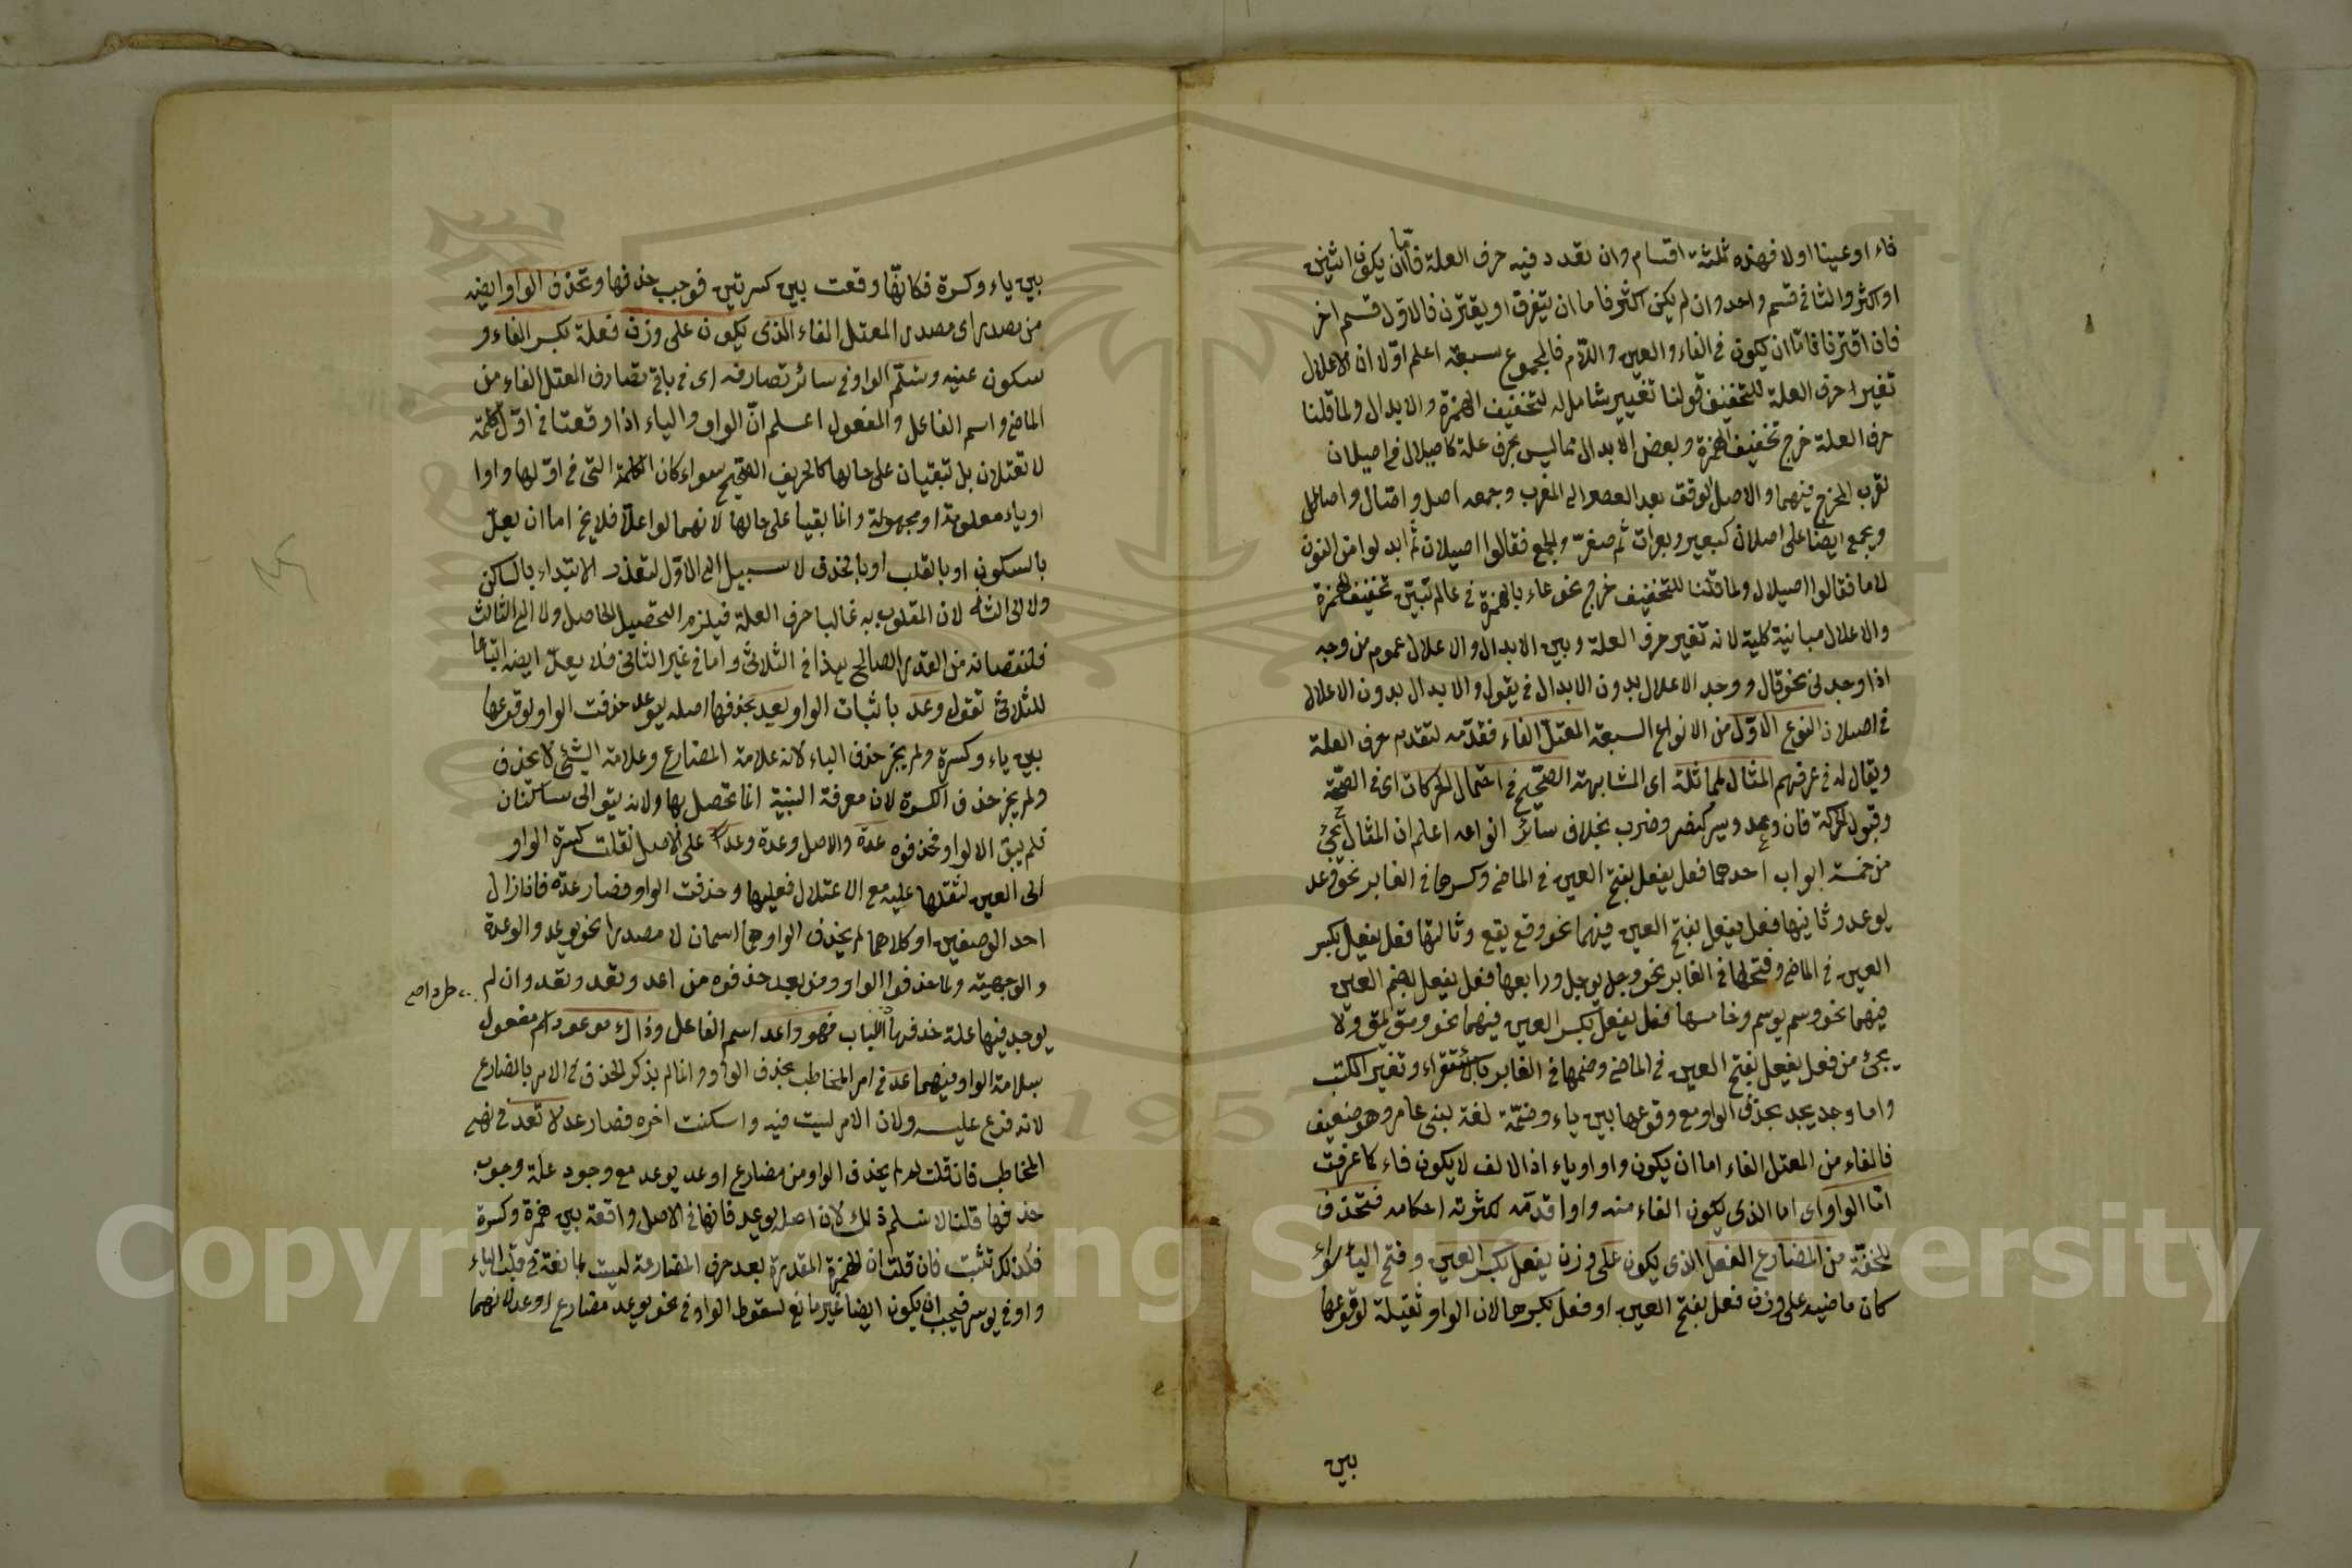 فاء او عينا اولا فهذه ثلثة اقسام وان تعدد فيه حرف العلة فاما ان يكون اثنين
او اكثر والثانى قسم واحد وان لم يكن اكثر فاما ان يتفرق او يقترن فالاول قسم اخر
فان اقترنا فاما ان يكون فى الفاء والعين واللام فالمجموع سبعة اعلم اولا ان الاعلال
تغير احرف العلة للتخفيف قولنا تغيير شامل له لتخفيف الهمزة والابدال ولما قلنا
حرف العلة خرج تخفيف الهمزة وبعض الابدال مما ليس بحرف علة كاصيلال فى اصيلان
لقرب المخرج فيهما والاصل الوقت بعد العصر الى المغرب وجمعه اصل واصال واصائل
ويجمع ايضا على اصلان كبعير وبعران ثم صغر والجمع فقالوا اصيلان ثم ابدلوا من النون
لاما فقالوا اصيلال ولما قلنا للتخفيف خرج نحو عاء بالهمزة فى عالم تبين تخفيف الهمزة
والاعلال مباينة كلية لانه تغير حرف العلة وبين الابدال والاعلال عموم من وجه
اذا وجد فى نحو قال ووجد الاعلال بدون الابدال فى يقول والابدال بدون الاعلال
فى اصيلان النوع الاول من الانواع السبعة المعتل الفاء فقدمه لتقدم حرف العلة
ويقال له فى عرفهم المثال لمماثلة اى المشابهة الصحيح فى احتمال الحركات اى فى الصحة
وقبول الحركة فان وعد ويسر كنصر وضرب بخلاف سائر انواعه اعلم ان المثال يجئ
من خمسة ابواب احدها فعل يفعل بفتح العين فى الماضى وكسرها فى الغابر نحو وعد
يوعد وثانيها فعل يفعل بفتح العين فيهما نحو وقع يقع وثالثها فعل يفعل بكسر
العين فى الماضى وفتحها فى الغابر نحو وجل يوجل ورابعها فعل يفعل بضم العين
فيهما نحو وسم يوسم وخامسها فعل يفعل بكسر العين فيهما نحو ومق يمق ولا
يجئ من فعل يفعل بفتح العين فى الماضى وضمها فى الغابر بالاستقراء وتغير الكتب
واما وجد يجد بحذف الواو مع وقوعها بين ياء وضمة لغة لبنى عامر وهو ضعيف
فالفاء من المعتل الفاء اما ان يكون واو او ياء اذ الالف لا يكون فاء كما عرفت
اما الواو اى اما الذى يكون الفاء منه واوا قدمه لكثرته احكامه فتحذف
للخفة من المضارع الفعل الذى يكون على وزن يفعل بكسر العين وفتح الياء سواء
كان ماضيه على وزن فعل بفتح العين او فعل بكسرها لان الواو ثقيلة لوقوعها
بين
بين ياء وكسرة فكانها وقعت بين كسرتين فوجب حذفها وتحذف الواو ايضه
من مصدر اى مصدر المعتل الفاء الذى يكون على وزن فعلة بكسر الفاء و
سكون عينه وتسلم الواو فى سائر تصارفه اى فى باقى تصارف المعتل الفاء من
الماضى واسم الفاعل والمفعول اعلم ان الواو والياء اذا وقعتا فى اول كلمة
لا تعتلان بل تبقيان على حالها كالحريف الصحيح سواء كان الكلمة التى فى اولها واوا
او ياء معلومة او مجهولة وانما بقيا على حالها لانهما لو اعلا فلا يخ اما ان يعل
بالسكون او بالقلب او بالحذف لا سبيل الى الاول لتعذر الابتداء بالساكن
ولا الى الثانى لان المقلوب به غالبا حرف العلة فيلزم التحصيل الحاصل ولا الى الثالث
فلنقصانه من القدر الصالح بهذا فى الثلاثى واما فى غير الثانى فلا يعل ايضه اتباعا
للثلاثى تقول وعد باثبات الواو يعد بحذفها اصله يوعد حذفت الواو لوقوعها
بين ياء وكسرة ولم يجز حذف الياء لانه علامة المضارع وعلامة الشئ لا تحذف
ولم يجز حذف الكسرة لان معرفة البنية انما تحصل بها ولانه يتوالى ساكنان
فلم يبق الا الواو فحذفوه عدة والاصل وعدة وعدا على الاصل نقلت كسرة الواو
الى العين لثقلها عليه مع الاعتلال فعليها وحذفت الواو فصار عدة فاذا زال
احد الوصفين او كلاهما لم يحذف الواو وهما اسمان لا مصدرا نحو يوعد والوعدة
والوجهية ولما حذفوا الواو ومن يعد حذفوه من اعد وتعد ونعد وان لم
طردا صح
يوجد فيها علة حذفها للباب فهو واعد اسم الفاعل وذاك موعود اسم مفعول
بسلامة الواو فيهما عد فى امر المخاطب بحذف الواو وانما لم يذكر الحذف فى الامر بالمضارع
لانه فرع عليه ولان الامر ليست فيه واسكنت اخره فصار عد لا تعد فى نهى
المخاطب فان قلت لم لم يحذف الواو من مضارع اوعد يوعد مع وجود علة وجوب
حذفها قلنا لا نسلم ذلك لان اصله يوعد فانها فى الاصل واقعة بين همزة وكسرة
فلذلك تثبت فان قلت ان الهمزة المقدرة بعد حرف المضارعة ليست بمانعة فى قلب الياء
واو فى يوسر فيجب ان يكون ايضا غير مانع لسقوط الواو فى نحو يوعد مضارع اوعد لانهما
Copyright © King Saud University
1957